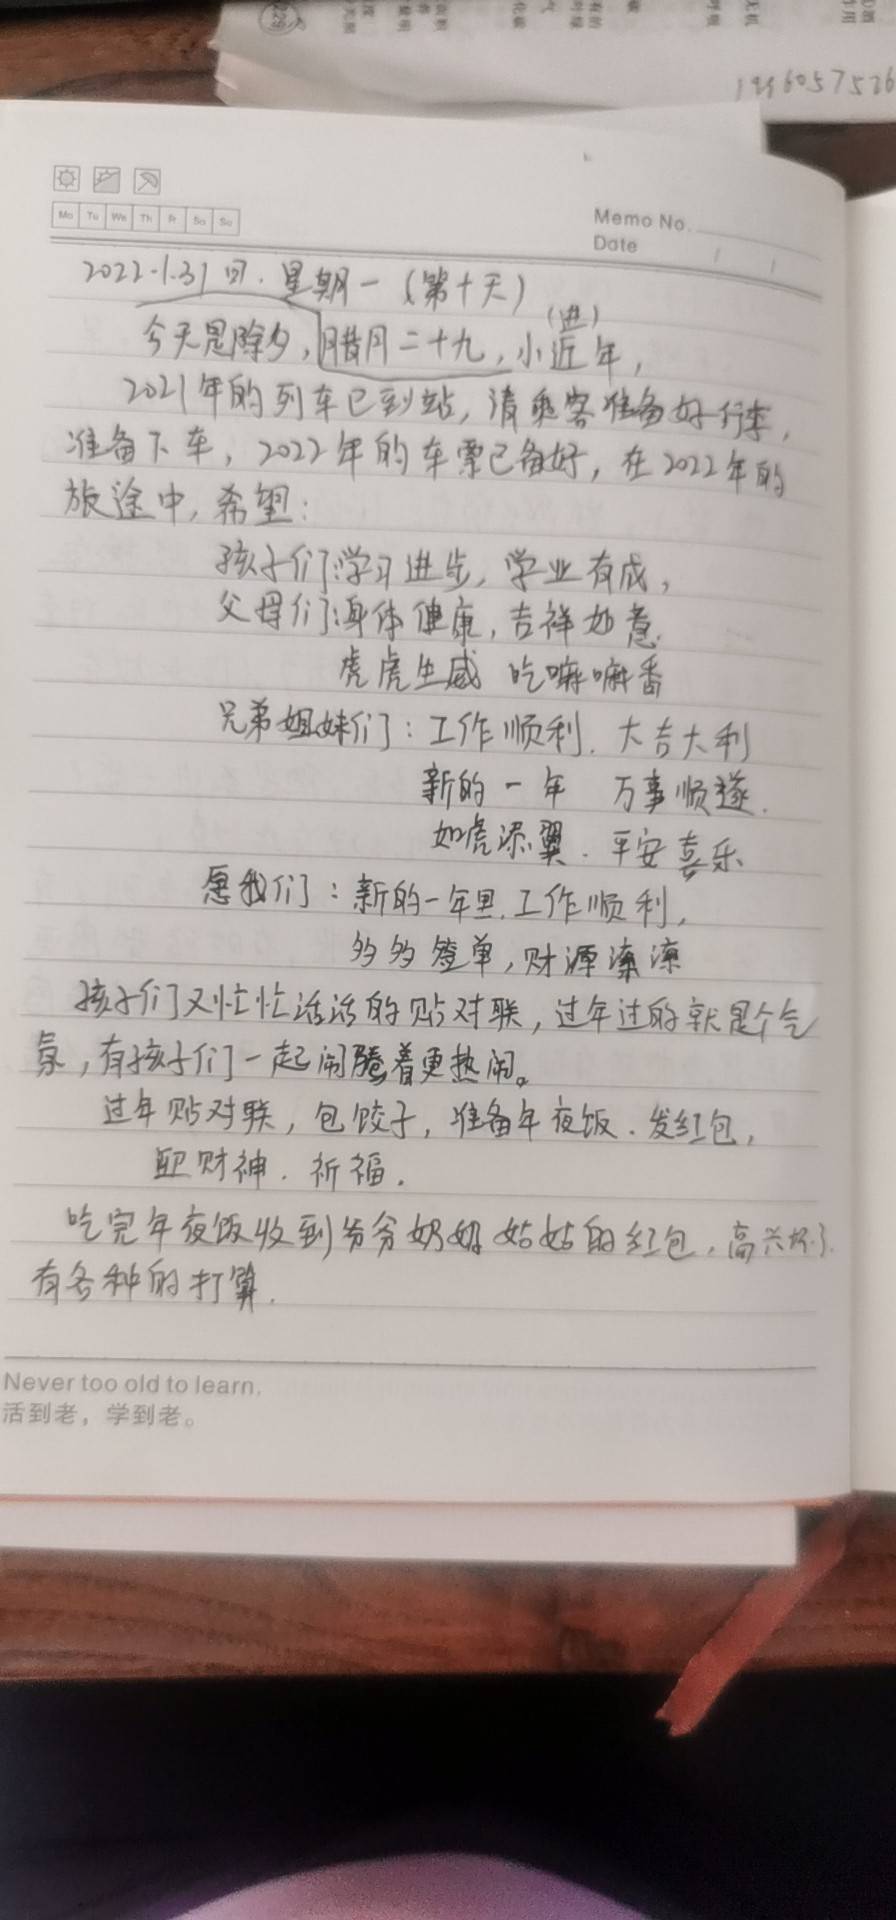 1996057526
Mo Tu We Th Fr Sa Su
Memo No.
Date / /
2022.1.31日. 星期一（第十天）
(进)
今天是除夕，腊月二十九，小近年，
2021年的列车已到站，请乘客准备好行李，
准备下车，2022年的车票已备好，在2022年的
旅途中，希望：
孩子们：学习进步，学业有成，
父母们：身体健康，吉祥如意.
虎虎生威 吃嘛嘛香
兄弟姐妹们：工作顺利. 大吉大利
新的一年 万事顺遂.
如虎添翼. 平安喜乐
愿我们：新的一年里.工作顺利，
多多签单，财源滚滚
孩子们又忙忙活活的贴对联，过年过的就是个气
氛，有孩子们一起闹腾着更热闹。
过年贴对联，包饺子，准备年夜饭.发红包，
迎财神. 祈福.
吃完年夜饭收到爷爷奶奶姑姑的红包，高兴坏了.
有各种的打算.
Never too old to learn.
活到老，学到老。